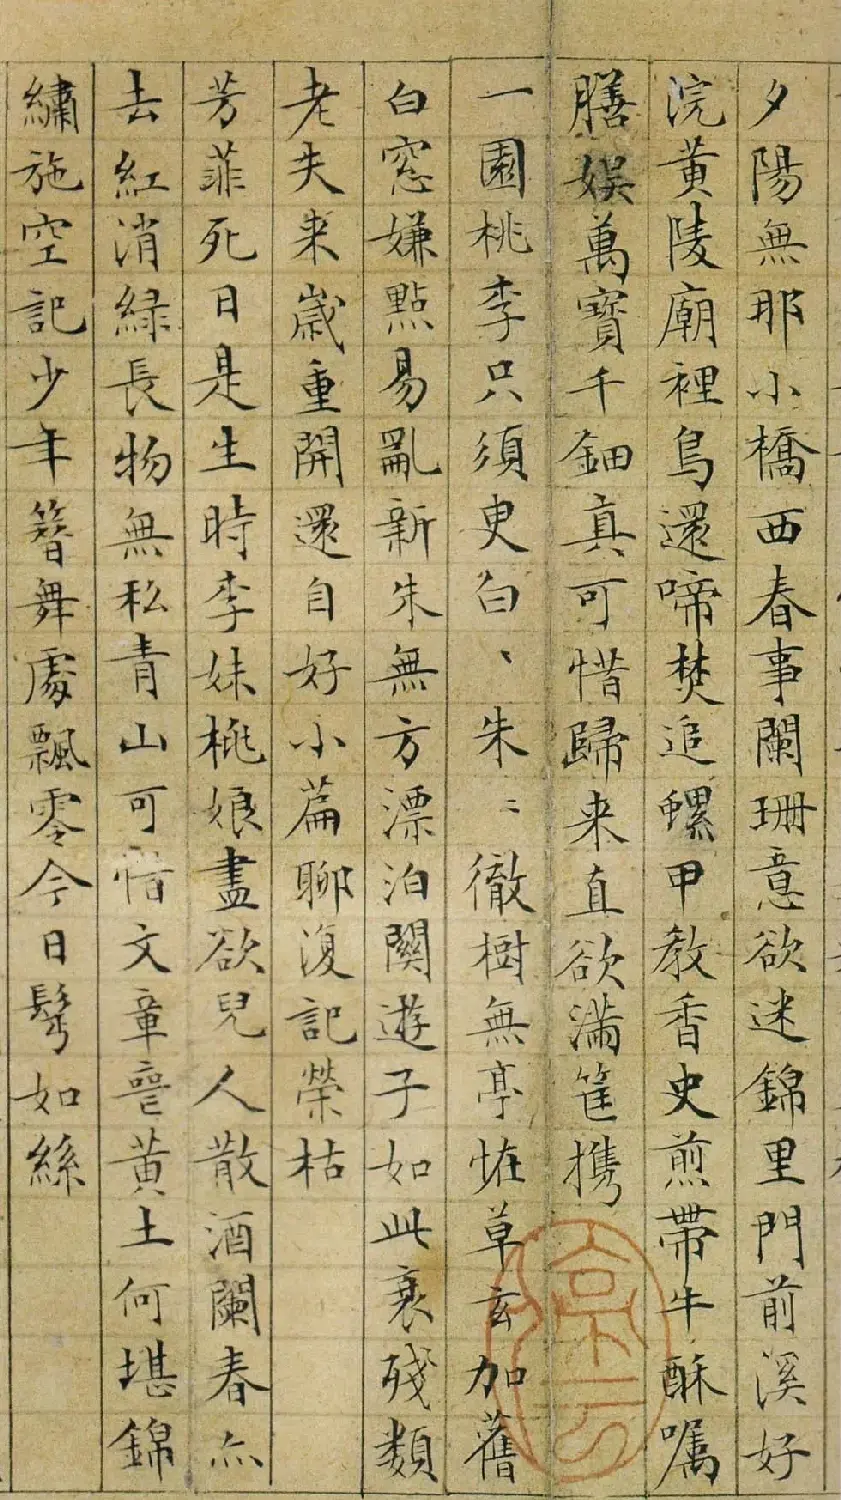 夕陽無那小橋西春事闌珊意欲迷錦里門前溪好
浣黄陵廟裡鳥還啼焚追螺甲教香史煎帶牛酥囑
膳娛萬寶千鈿真可惜歸来直欲滿筐携
一園桃李只須臾白、朱〻徹樹無亭怪草玄加舊
白窓嫌點易亂新朱無方漂泊關遊子如此衰殘類
老夫来歲重開還自好小篇聊復記榮枯
芳菲死日是生時李妹桃娘盡欲兒人散酒闌春亦
去紅消緑長物無私青山可惜文章喪黄土何堪錦
繡施空記少年簪舞處飄零今日鬢如絲